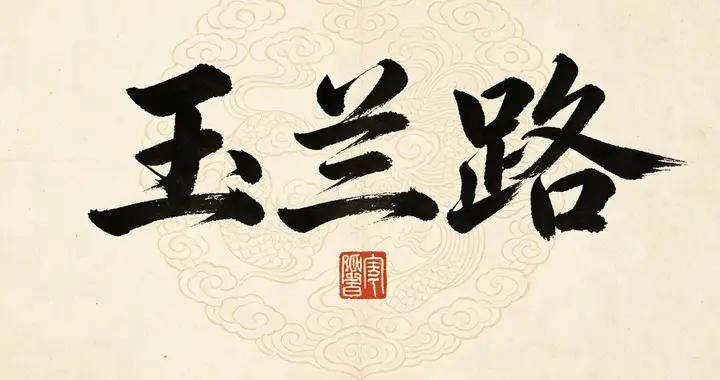 玉兰路